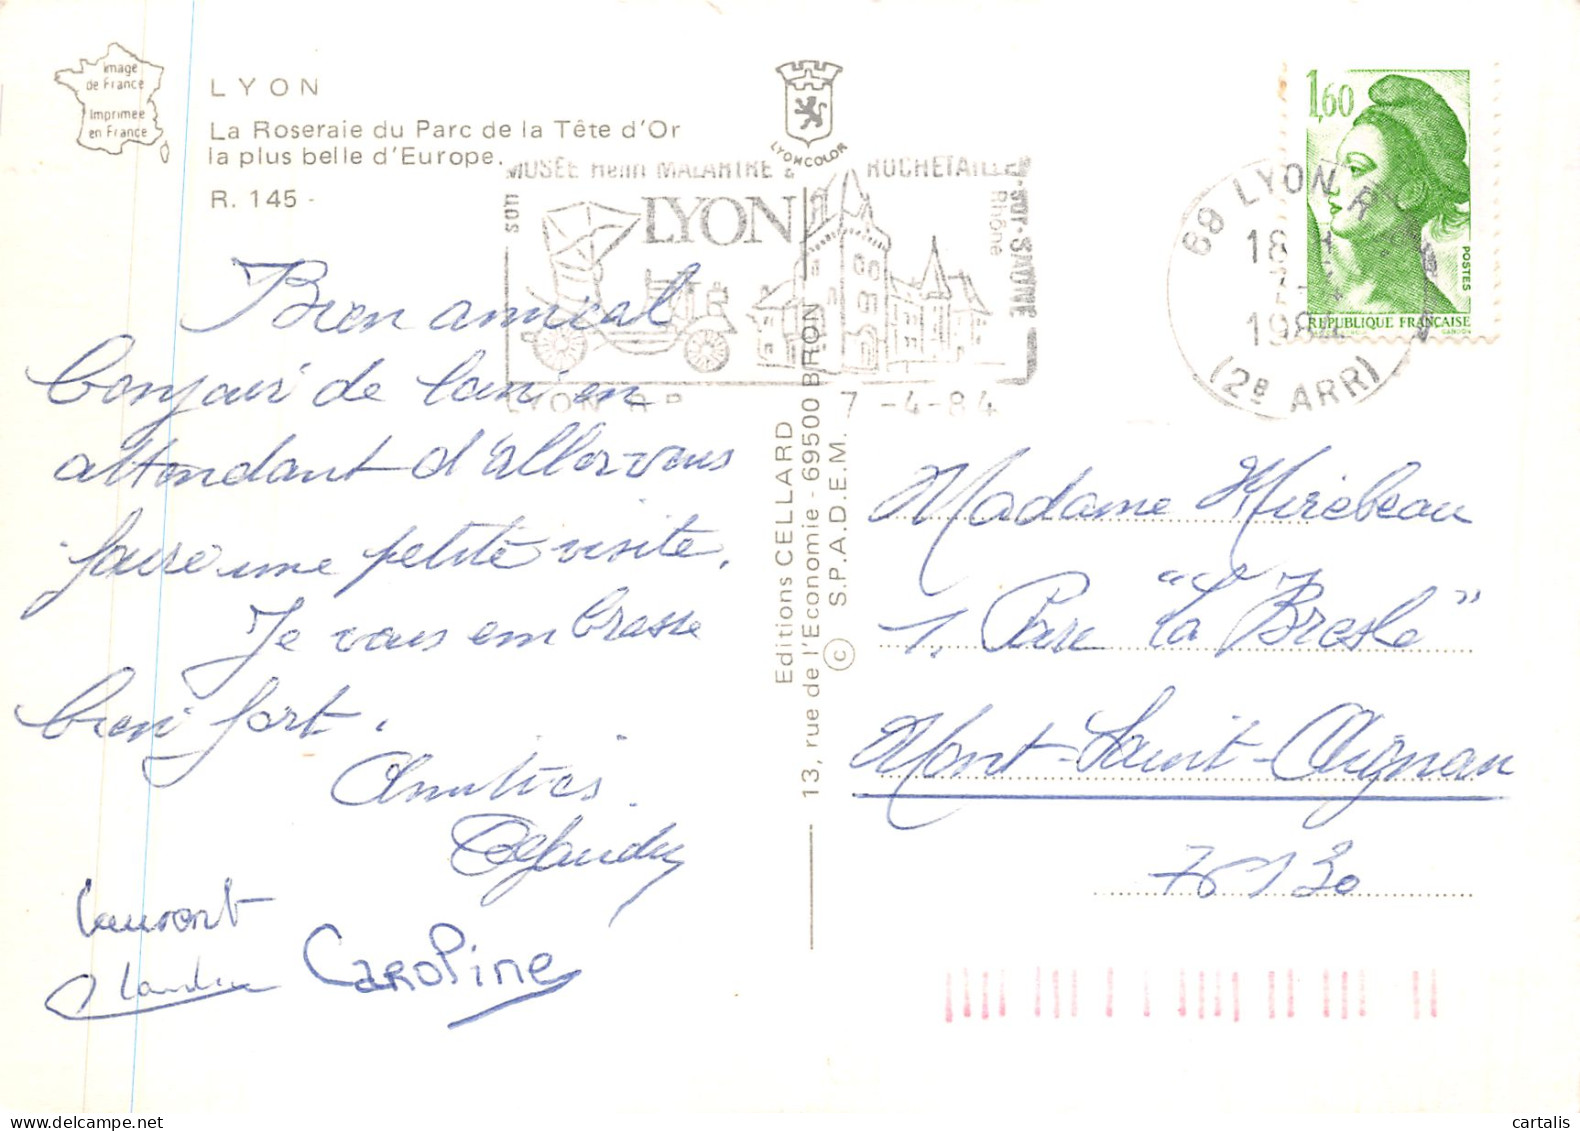 Image
de France
Imprimée
en France
LYON
La Roseraie du Parc de la Tête d'Or
la plus belle d'Europe.
R. 145 -
LYONCOLOR
son MUSÉE Henri MALARTRE à ROCHETAILLÉE-sur-SAONE
Rhône
LYON
LYON R P 7 -4-84
69 LYON R P
18 H
7-4
1984
(2e ARR)
1,60
POSTES
REPUBLIQUE FRANÇAISE
GANDON
Bien amical
bonjour de Lyon en
attendant d'aller vous
faire une petite visite.
Je vous embrasse
bien fort.
Amitiés.
Laurent
Caroline
Editions CELLARD
13, rue de l'Economie - 69500 BRON
© S.P.A.D.E.M.
Madame Mirebeau
1, Parc "La Bresle"
Mont-Saint-Aignan
76130
cartalis